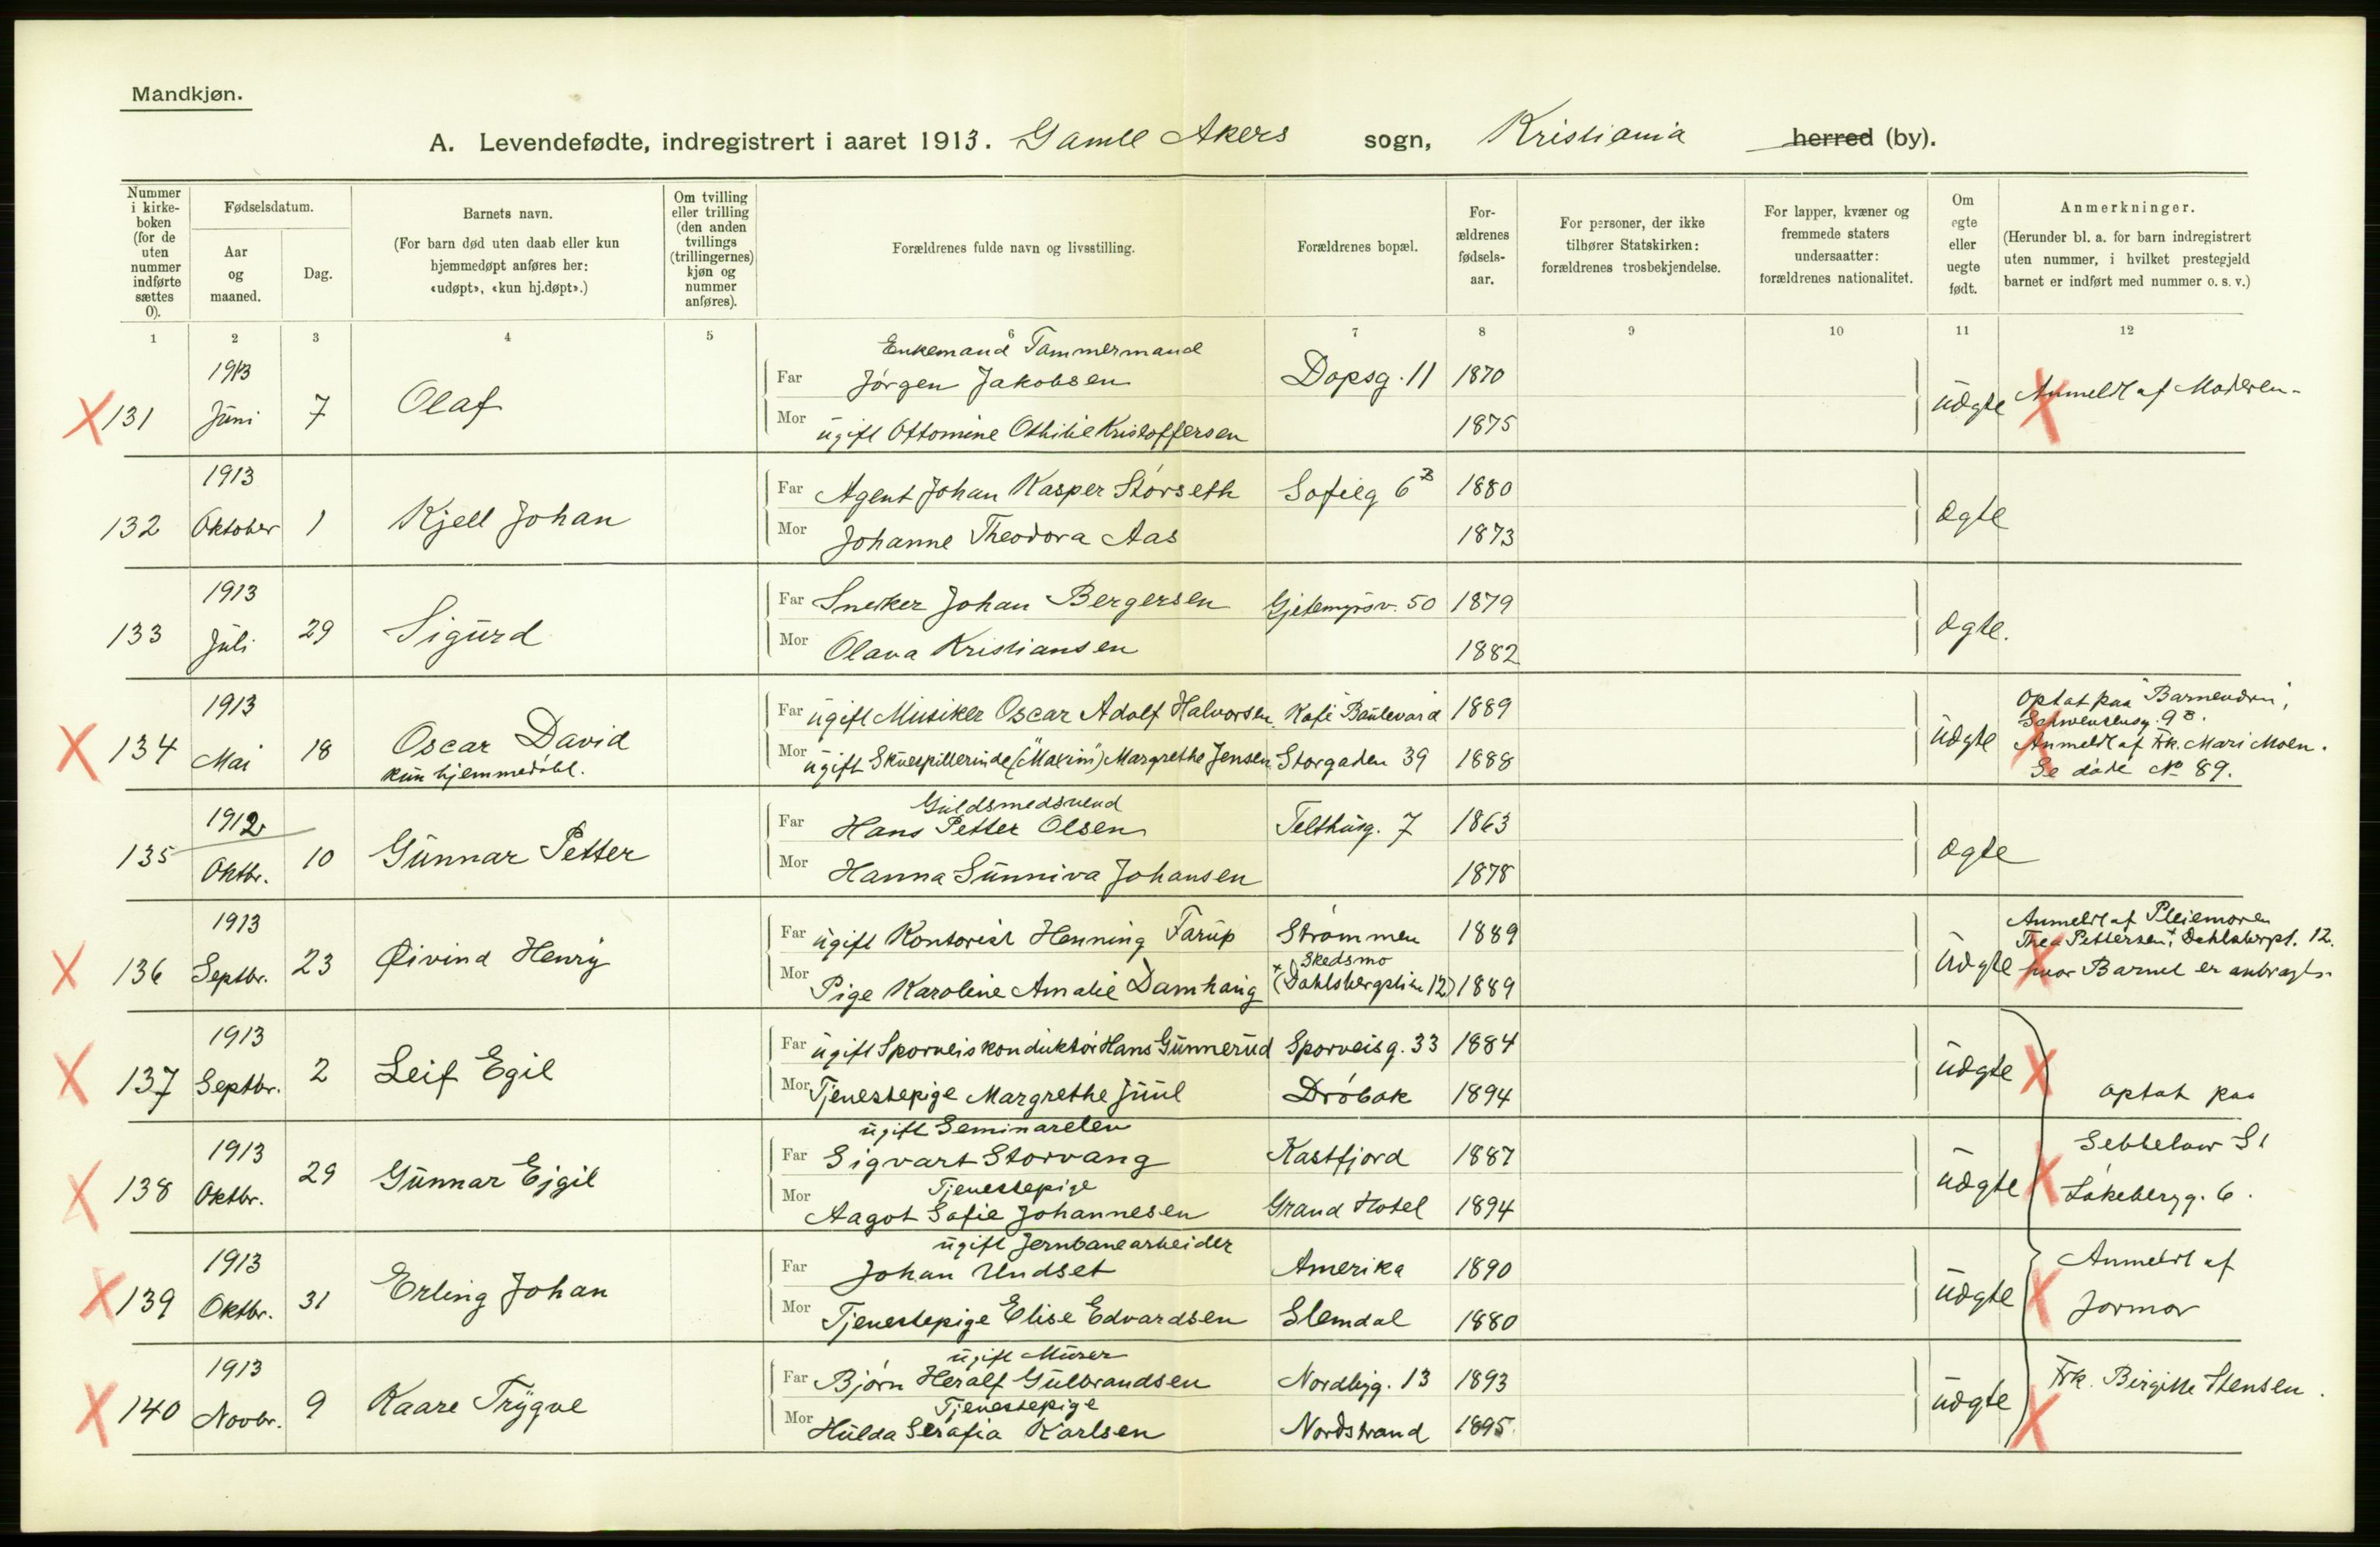 Mandkjøn.
A. Levendefødte, indregistrert i aaret 1913. Gamle Akers sogn, Kristiania herred (by).
Nummer i kirke-boken (for de uten nummer indførte sættes 0).
Fødselsdatum.
Aar og maaned.
Dag.
Barnets navn.
(For barn død uten daab eller kun hjemmedøpt anføres her: «udøpt», «kun hj.døpt».)
Om tvilling eller trilling (den anden tvillings (trillingernes) kjøn og nummer anføres).
Forældrenes fulde navn og livsstilling.
Forældrenes bopæl.
For-ældrenes fødsels-aar.
For personer, der ikke tilhører Statskirken: forældrenes trosbekjendelse.
For lapper, kvæner og fremmede staters undersaatter: forældrenes nationalitet.
Om egte eller uegte født.
Anmerkninger.
(Herunder bl. a. for barn indregistrert uten nummer, i hvilket prestegjeld barnet er indført med nummer o. s. v.)
1 2 3 4 5 6 7 8 9 10 11 12
X 131 1913 Juni 7 Olaf
Enkemand Tømmermand
Far Jørgen Jakobsen Dopsg. 11 1870
Mor ugift Ottomine Othilie Kristoffersen 1875
uægte Anmeldt af Moderen
132 1913 Oktober 1 Kjell Johan
Far Agent Johan Kasper Størseth Sofieg 6B 1880
Mor Johanne Theodora Aas 1873
ægte
133 1913 Juli 29 Sigurd
Far Snekker Johan Bergersen Gjetemyrsv. 50 1879
Mor Olava Kristiansen 1882
ægte.
X 134 1913 Mai 18 Oscar David
kun hjemmedøbt.
Far ugift Musiker Oscar Adolf Halvorsen Kafé Boulevard 1889
Mor ugift Skuespillerinde ("Maxim") Margrethe Jensen Storgaden 39 1888
uægte
optat paa "Barnenden",
Schwensensg. 9B.
Anmeldt af Frk. Mari Moen.
Se døde No 89.
135 1912 Oktbr. 10 Gunnar Petter
Guldsmedsvend
Far Hans Petter Olsen Telthusg. 7 1863
Mor Hanna Sunniva Johansen 1878
ægte
X 136 1913 Septbr. 23 Øivind Henry
Far ugift Kontorist Henning Farup Strømmen 1889
Skedsmo
Mor Pige Karoline Amalie Damhaug (Dahlsbergstien 12) 1889
uægte
Anmeldt af Pleiemoren
Thea Pettersen, Dahlsbergst. 12.
hvor Barnet er anbragt.
X 137 1913 Septbr. 2 Leif Egil
Far ugift Sporveiskonduktør Hans Gunnerud Sporveisg. 33 1884
Mor Tjenestepige Margrethe Juul Drøbak 1894
uægte optat paa
X 138 1913 Oktbr. 29 Gunnar Ejgil
ugift Seminarelev
Far Sigvart Storvang Kastfjord 1887
Tjenestepige
Mor Aagot Sofie Johannesen Grand Hotel 1894
uægte
Sebbelow St
Lakebergg. 6.
X 139 1913 Oktbr. 31 Erling Johan
ugift Jernbanearbeider
Far Johan Undset Amerika 1890
Mor Tjenestepige Elise Edvardsen Slemdal 1880
uægte
Anmeldt af
Jormor
X 140 1913 Novbr. 9 Kaare Trygve
ugift Murer
Far Bjørn Heralf Gulbrandsen Nordbyg. 13 1893
Tjenestepige
Mor Hulda Serafia Karlsen Nordstrand 1895
uægte Frk. Birgitte Stensen.